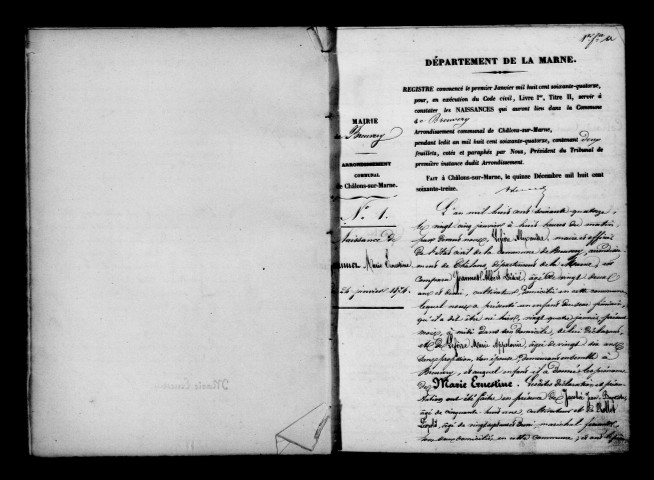 DÉPARTEMENT DE LA MARNE.
REGISTRE commencé le premier Janvier mil huit cent soixante-quatorze,
pour, en exécution du Code civil, Livre Ier, Titre II, servir à
constater les NAISSANCES qui auront lieu dans la Commune
de Breuvery
Arrondissement communal de Châlons-sur-Marne,
pendant ledit an mil huit cent soixante-quatorze, contenant deux
feuillets, cotés et paraphés par Nous, Président du Tribunal de
première instance dudit Arrondissement.
FAIT à Châlons-sur-Marne, le quinze Décembre mil huit cent
soixante-treize.
MAIRIE
de Breuvery
ARRONDISSEMENT
COMMUNAL
de Châlons-sur-Marne.
N° 1.
Naissance de
Marie Ernestine
24 janvier 1874.
L'an mil huit cent soixante quatorze,
le vingt cinq janvier à huit heures du matin,
par devant nous, Lefèvre Alexandre, maire et officier
de l'état civil de la commune de Breuvery, arrondisse-
ment de Châlons, département de la Marne, est
comparu Albert âgé de vingt deux
ans et demi, cultivateur, domicilié en cette commune
lequel nous a présenté un enfant du sexe féminin,
qu'il a dit être né hier, vingt quatre janvier, présent
mois, à midi dans son domicile, de lui déclarant,
et de Lefèvre Marie Appoline, âgée de vingt six ans
sans profession, son épouse, demeurant ensemble à
Breuvery, et auquel enfant il a donné les prénoms
de Marie Ernestine. Lesdites déclaration et présen-
tation ont été faites en présence de Jean
âgé de cinquante huit ans, cultivateur et de Rollet
âgé de vingt maréchal ferrant
tous deux domiciliés en cette commune; et ont